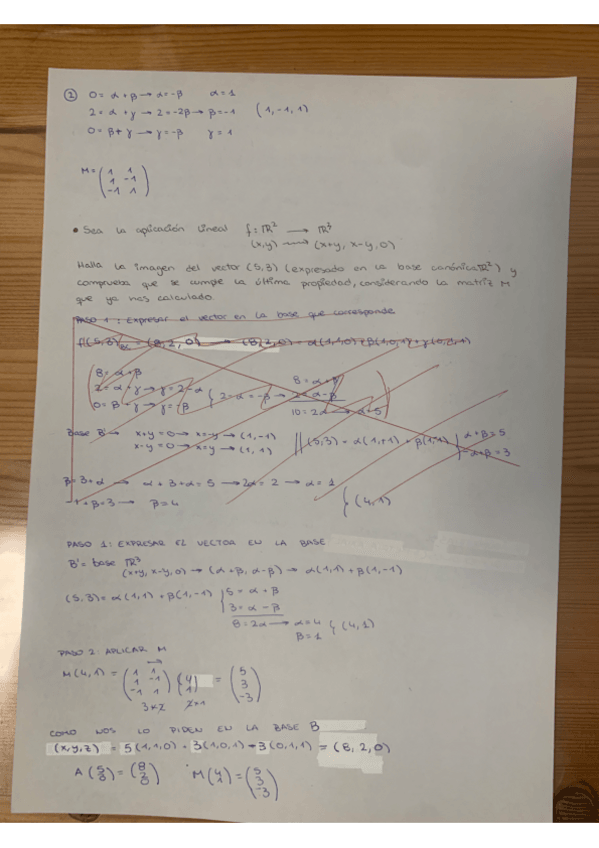 ② 0 = α + β → α = -β α = 1
2 = α + γ → 2 = -2β → β = -1 (1, -1, 1)
0 = β + γ → γ = -β γ = 1
M = ( 1 1
1 -1
-1 1 )
• Sea la aplicación lineal f: ℝ² → ℝ³
(x,y) ⟿ (x+y, x-y, 0)
Halla la imagen del vector (5,3) (expresado en la base canónica ℝ²) y
comprueba que se cumple la última propiedad, considerando la matriz M
que ya has calculado.
PASO 1: Expresar el vector en la base que corresponde
f(5,3) = (8,2,0) → (8,2,0) = α(1,1,0) + β(1,0,1) + γ(0,1,1)
8 = α + β
2 = α + γ → γ = 2 - α
0 = β + γ → γ = -β
2 - α = -β
8 = α + β
2 = α - β
10 = 2α → α = 5
Base B' → x+y = 0 → x = -y → (1,-1)
x-y = 0 → x = y → (1,1)
(5,3) = α(1,-1) + β(1,1)
α + β = 5
-α + β = 3
β = 3 + α → α + 3 + α = 5 → 2α = 2 → α = 1
-1 + β = 3 → β = 4
(4,1)
PASO 1: EXPRESAR EL VECTOR EN LA BASE
B' = base ℝ³
(x+y, x-y, 0) → (α+β, α-β) → α(1,1) + β(1,-1)
(5,3) = α(1,1) + β(1,-1) 5 = α + β
3 = α - β
8 = 2α → α = 4
β = 1 (4,1)
PASO 2: APLICAR M
M(4,1) = ( 1 1
1 -1
-1 1 ) ( 4
1 ) = ( 5
3
-3 )
3×2 2×1
COMO NOS LO PIDEN EN LA BASE B
(x,y,z) = 5(1,1,0) + 3(1,0,1) - 3(0,1,1) = (8,2,0)
A ( 5
3 ) = ( 8
2
0 ) M ( 4
1 ) = ( 5
3
-3 )